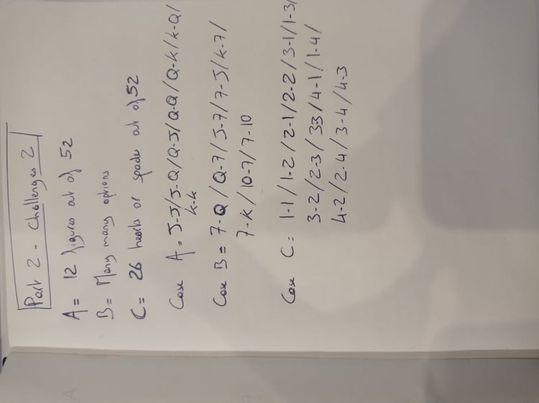 Part 2 - Challenges 2
A = 12 figures out of 52
B = Many many options
C = 26 hearts or spades out of 52
Case A = J-J/J-Q/Q-J/Q-Q/Q-K/K-Q/
K-K
Case B = 7-Q/Q-7/J-7/7-J/K-7/
7-K/10-7/7-10
Case C: 1-1/1-2/2-1/2-2/3-1/1-3/
3-2/2-3/33/4-1/1-4/
4-2/2-4/3-4/4-3